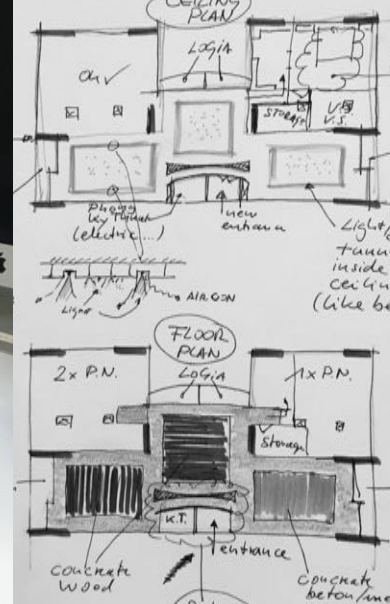 CEILING
PLAN
LOGIA
OK ✓
STORAGE
V.S.
(electric...)
new
entrance
Light/
tunn
inside
ceilin
(like be
Light
AIRCON
FLOOR
PLAN
2x P.N.
LOGIA
1x P.N.
Storage
K.T.
entrance
concrete
wood
concrete
beton/